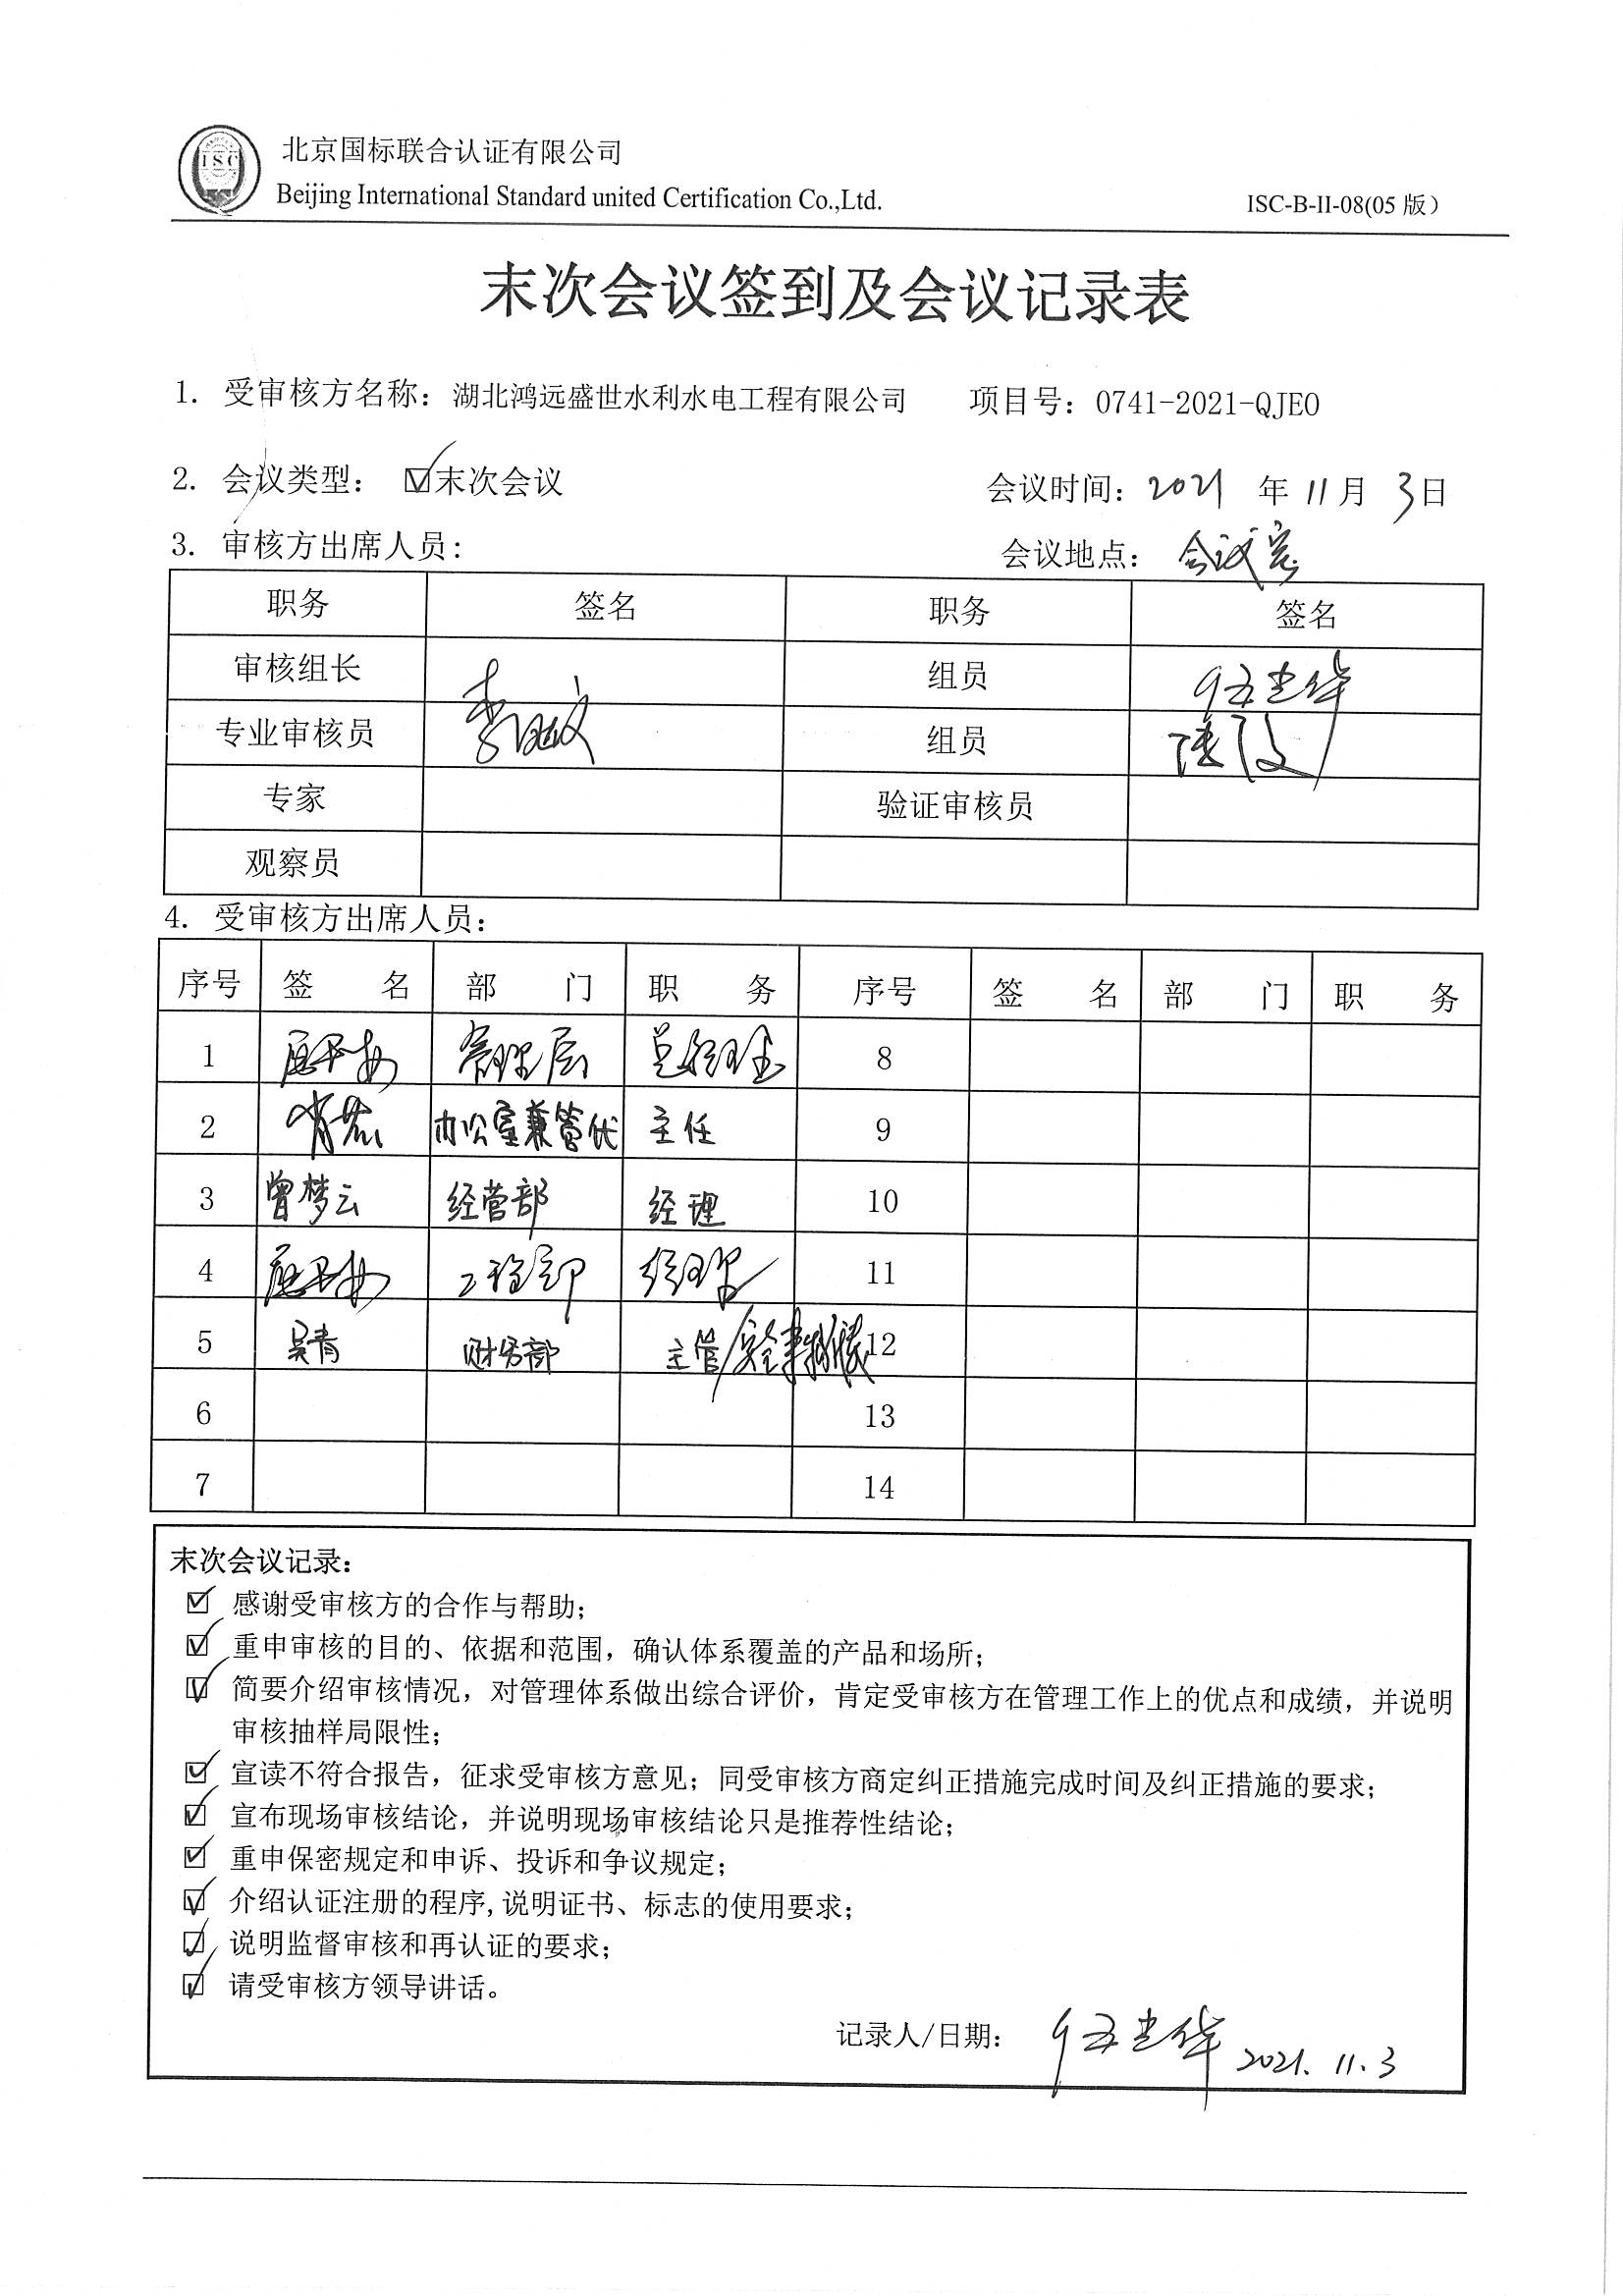 ISC
北京国标联合认证有限公司
Beijing International Standard united Certification Co.,Ltd.
ISC-B-II-08(05 版)
末次会议签到及会议记录表
1. 受审核方名称：湖北鸿远盛世水利水电工程有限公司 项目号：0741-2021-QJEO
2. 会议类型： ☑末次会议 会议时间：2021 年 11 月 3 日
3. 审核方出席人员： 会议地点： 会议室
职务 签名 职务 签名
审核组长 组员 伍光华
专业审核员 组员
专家 验证审核员
观察员
4. 受审核方出席人员：
序号 签 名 部 门 职 务 序号 签 名 部 门 职 务
1 管理层 总经理 8
2 办公室兼管代 主任 9
3 曾梦云 经营部 经理 10
4 工程部 经理 11
5 吴青 财务部 主管/安全事务代表 12
6 13
7 14
末次会议记录：
☑ 感谢受审核方的合作与帮助；
☑ 重申审核的目的、依据和范围，确认体系覆盖的产品和场所；
☑ 简要介绍审核情况，对管理体系做出综合评价，肯定受审核方在管理工作上的优点和成绩，并说明
审核抽样局限性；
☑ 宣读不符合报告，征求受审核方意见；同受审核方商定纠正措施完成时间及纠正措施的要求；
☑ 宣布现场审核结论，并说明现场审核结论只是推荐性结论；
☑ 重申保密规定和申诉、投诉和争议规定；
☑ 介绍认证注册的程序,说明证书、标志的使用要求；
☑ 说明监督审核和再认证的要求；
☑ 请受审核方领导讲话。
记录人/日期： 伍光华 2021.11.3